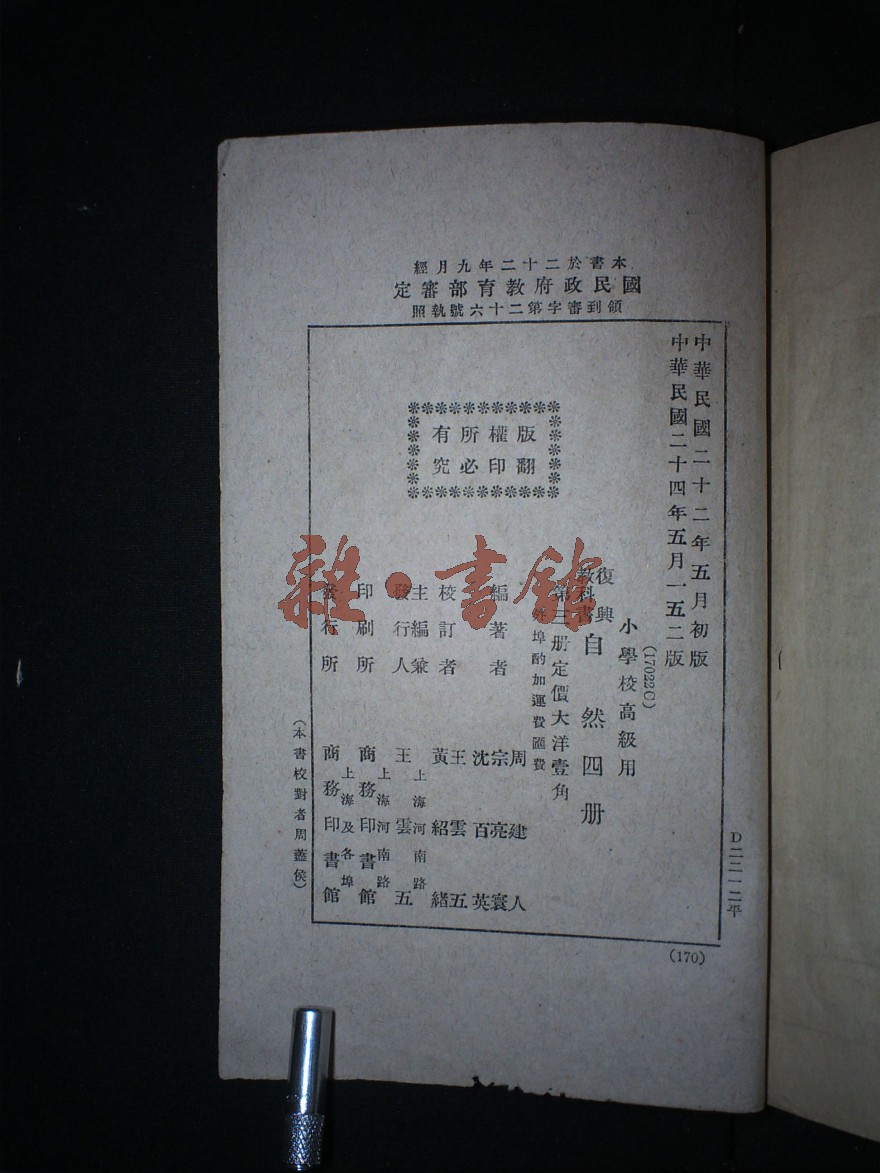 本書於二十二年九月經
國民政府教育部審定
領到審字第二十六號執照
中華民國二十二年五月初版
中華民國二十四年五月一五二版
(17022C)
小學校高級用
復興教科書
自然四册
第三册定價大洋壹角
外埠酌加運費匯費
版權所有
翻印必究
編著者
周建人
宗亮寰
沈百英
校訂者
王雲五
黃紹緒
主編兼發行人
上海河南路
王雲五
印刷所
上海河南路
商務印書館
發行所
上海及各埠
商務印書館
(本書校對者周藎侯)
D二二一二平
(170)
雜·書館